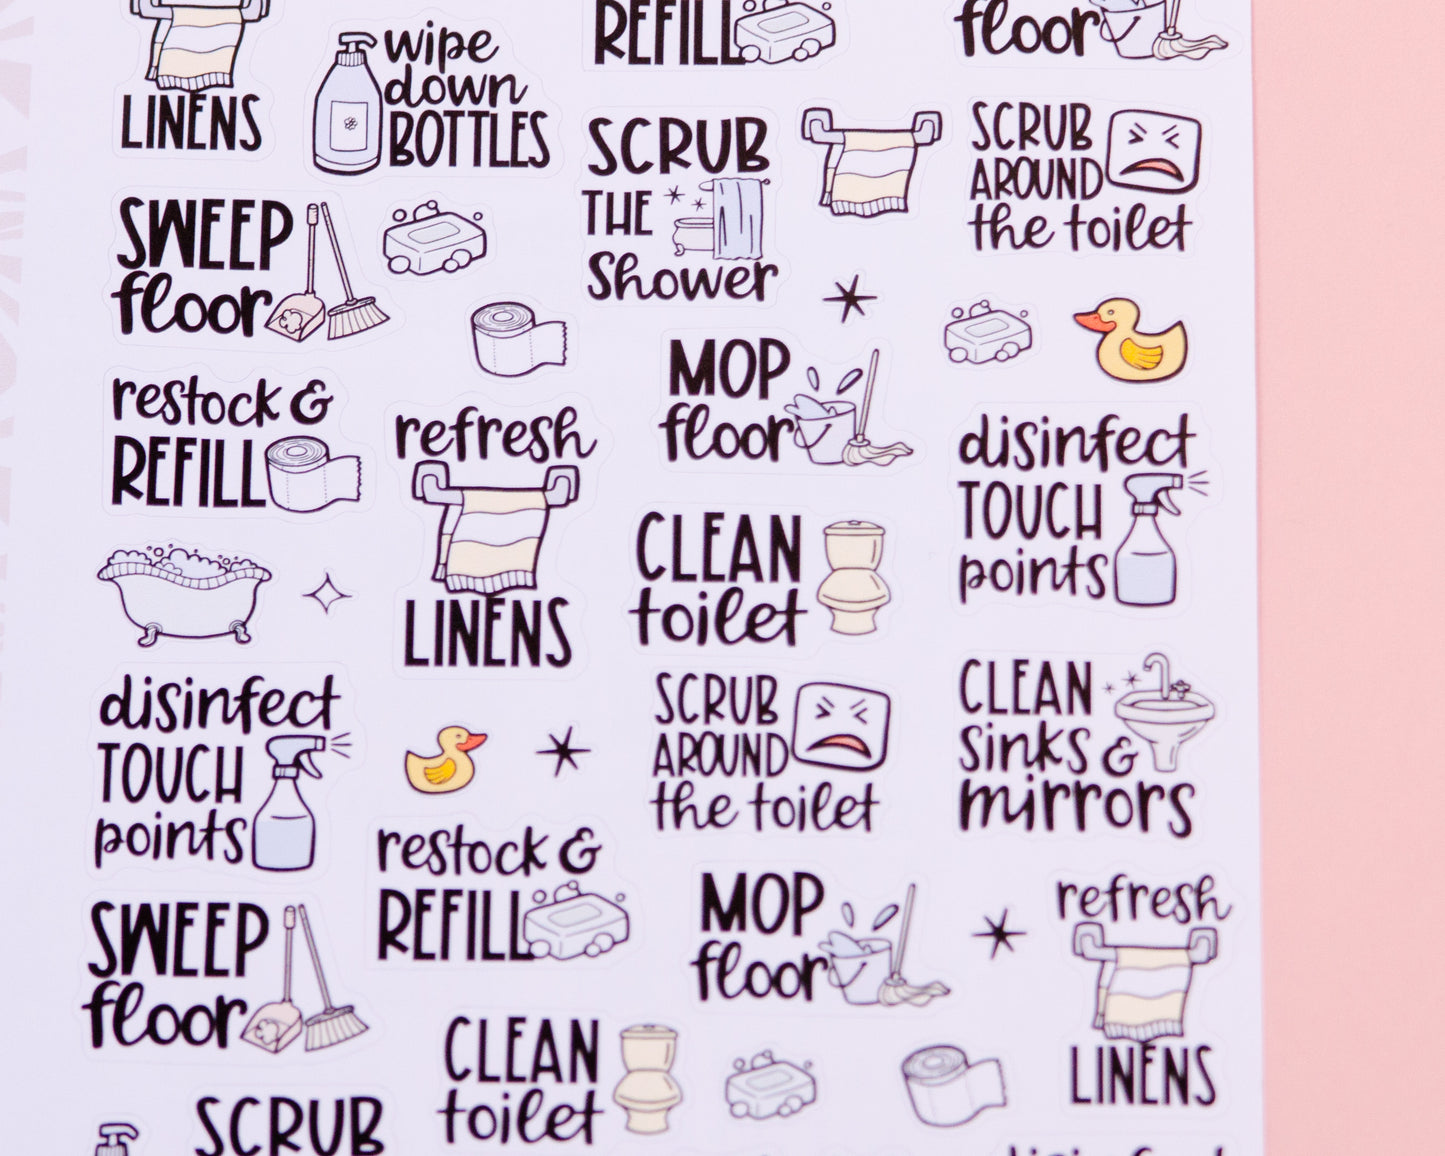 LINENS
wipe
down
BOTTLES
REFILL
floor
SWEEP
floor
SCRUB
THE
Shower
SCRUB
AROUND
the toilet
restock &
REFILL
refresh
LINENS
MOP
floor
disinfect
TOUCH
points
CLEAN
toilet
disinfect
TOUCH
points
SCRUB
AROUND
the toilet
CLEAN
sinks &
mirrors
restock &
REFILL
SWEEP
floor
MOP
floor
refresh
LINENS
CLEAN
toilet
SCRUB